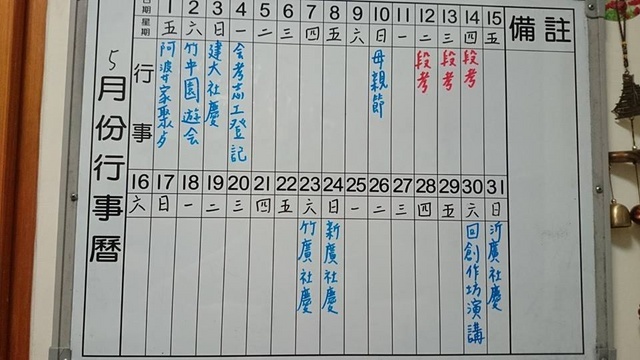 5月份行事曆
日期 1 2 3 4 5 6 7 8 9 10 11 12 13 14 15
星期 五 六 日 一 二 三 四 五 六 日 一 二 三 四 五
行事
家聚
竹中園遊会
建大社慶
会考志工登記
母親節
段考
段考
段考
16 17 18 19 20 21 22 23 24 25 26 27 28 29 30 31
六 日 一 二 三 四 五 六 日 一 二 三 四 五 六 日
竹廣社慶
新廣社慶
回創作坊演講
沂廣社慶
備註